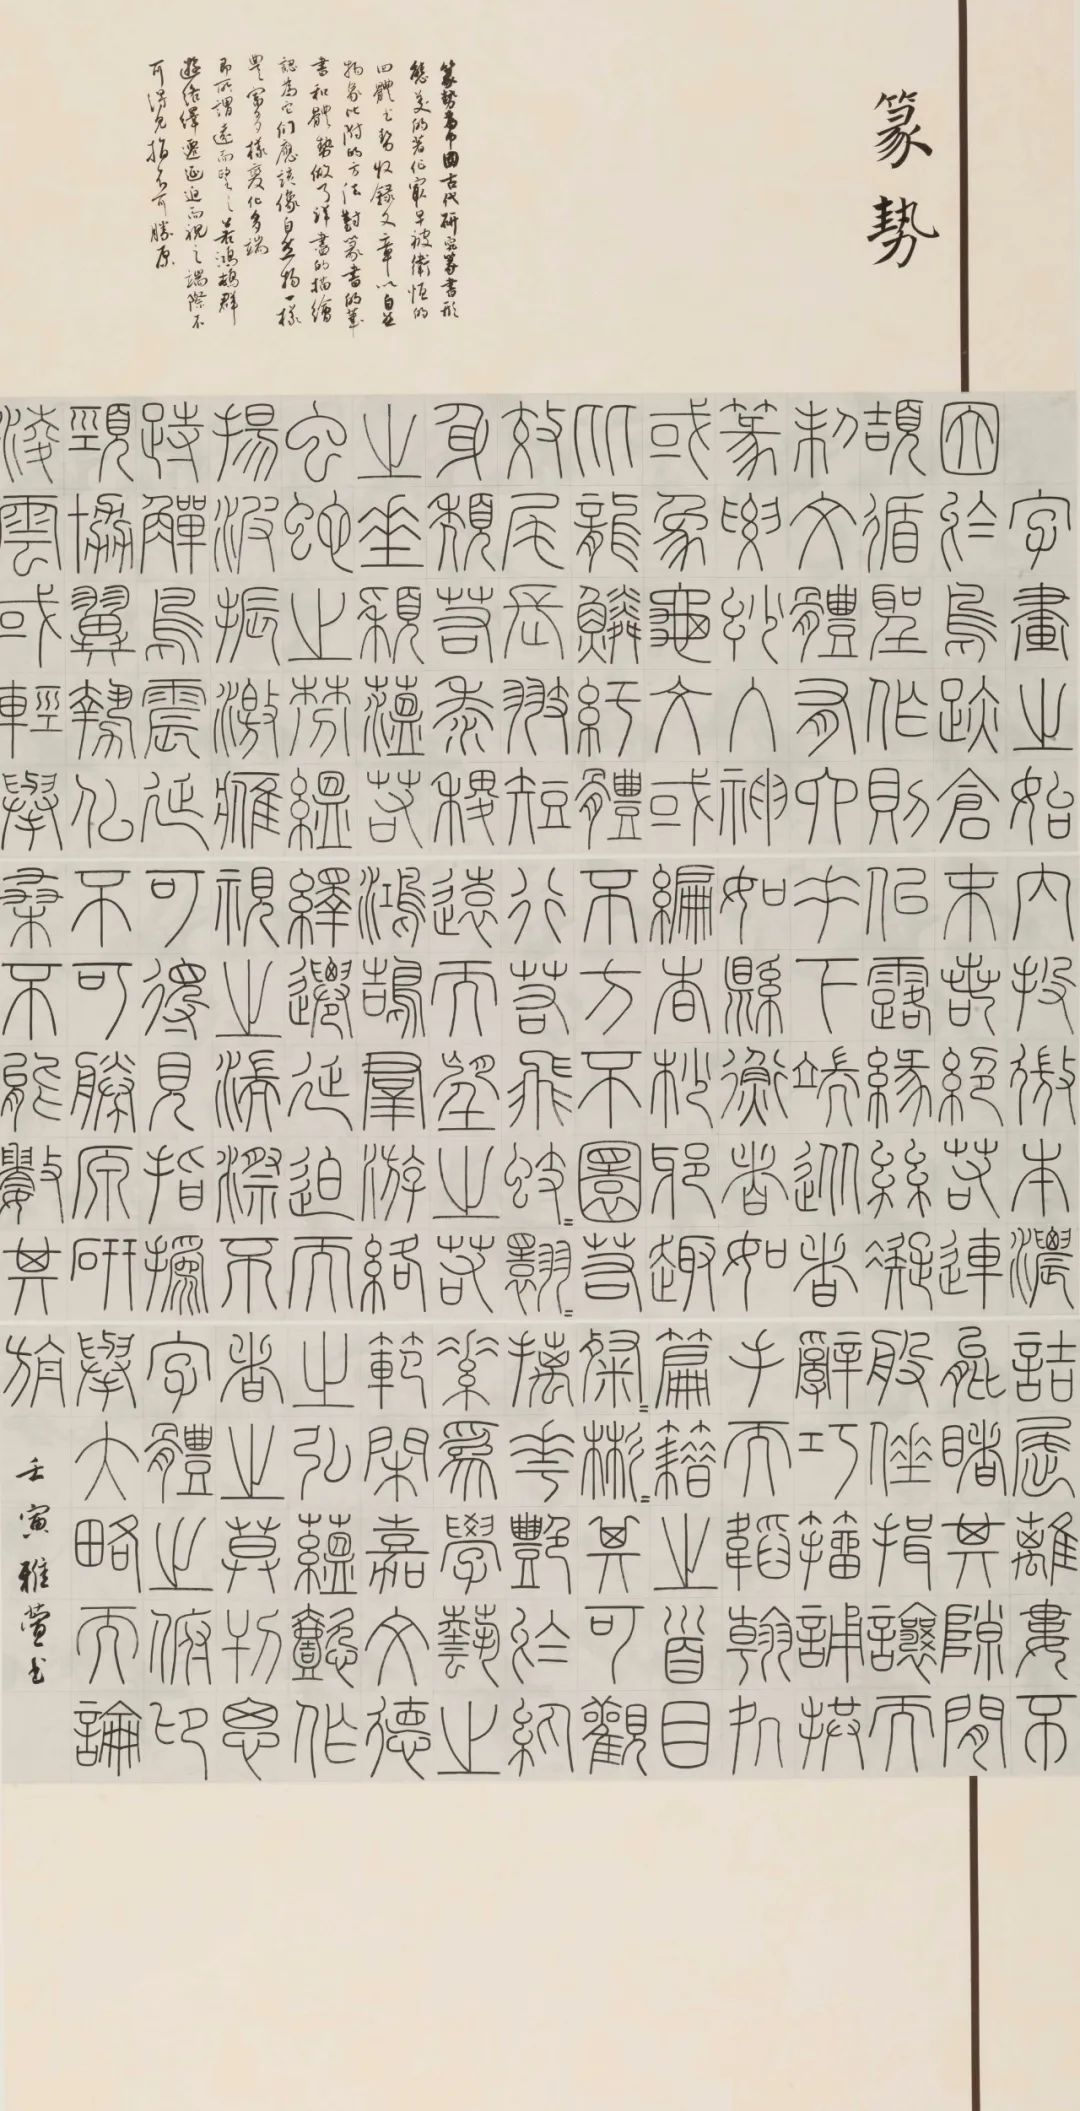 篆勢
篆勢為中國古代研究篆書形
態美的著作最早被衛恒的
四體書勢收錄文章以自然
物象比附的方法對篆書的筆
畫和體勢做了詳盡的描繪
認為它們應該像自然物一樣
豐富多樣變化多端
即所謂遠而望之若鴻鵠群
遊絡繹遷延迫而視之端際不
可得見指不可勝原
字畫之始
因於鳥跡倉
頡循聖作則
制文體有六
篆要妙入神
或象龜文或
比龍鱗紆體
效尾長翅短
身頹若黍稷
之垂穎蘊若
虫蛇之棼縕
揚波振激鷹
跱鳥震延
頸協翼勢似
淩雲或輕舉
內投微本濃
末若絕若連
似露緣絲凝
垂下端從者
如縣衡者如
編杳杪邪趣
不方不圓若
行若飛蚑=翾=
遠而望之若
鴻鵠羣游絡
繹遷延迫而
視之湍漈不
可得見指撝
不可勝原研
桑不能數其
詰屈離婁不
能睹其隙間
般倕揖讓而
辭巧籀誦拱
手而韜翰処
篇籍之首目
粲=彬=其可觀
摛華艷於紈
素為學藝之
範閑嘉文德
之弘蘊懿作
者之莫刊思
字體之俯仰
舉大略而論
旃
壬寅雅萱書